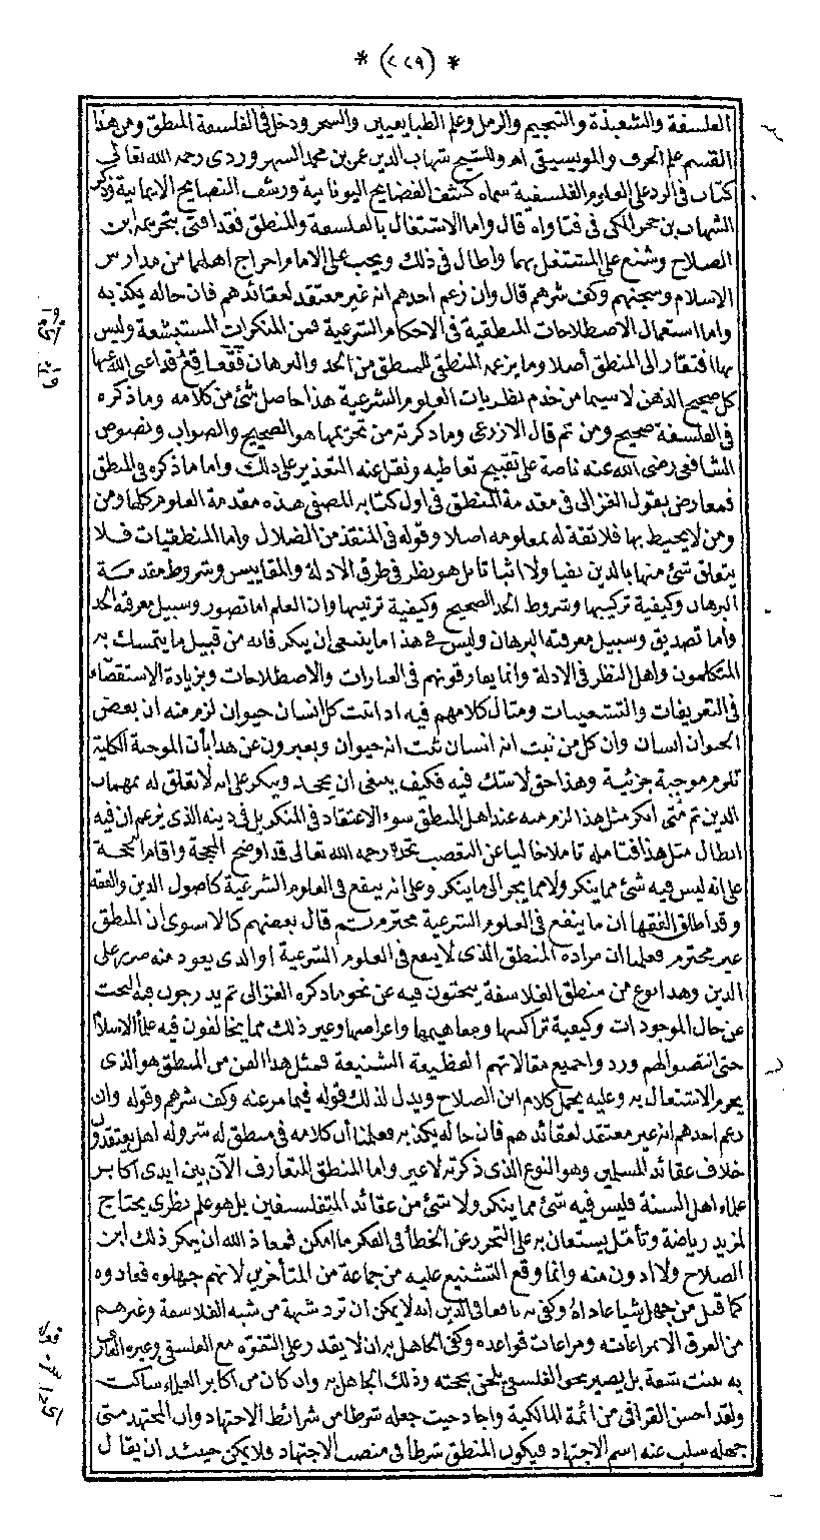 * (٢٢٩) *
الفلسفة والشعبذة والتنجيم والرمل وعلم الطبايعيين والسحر ودخل في الفلسفة المنطق ومن هذا
القسم علم الحرف والموسيقى اهـ وللشيخ شهاب الدين عمر بن محمد السهروردي رحمه الله تعالى
كتاب في الرد على العلوم الفلسفية سماه كشف الفضايح اليونانية ورشف النصايح الايمانية وذكر
الشهاب بن حجر المكي في فتاواه قال واما الاشتغال بالفلسفة والمنطق فقد افتى بتحريمه ابن
الصلاح وشنع على المشتغل بهما واطال في ذلك ويجب على الامام اخراج اهلهما من مدارس
الاسلام وسجنهم وكف شرهم قال وان زعم احدهم انه غير معتقد لعقائدهم فان حاله يكذبه
واما استعمال الاصطلاحات المنطقية في الاحكام الشرعية فمن المنكرات المستبشعة وليس
بها افتقار الى المنطق أصلا وما يزعمه المنطقي للمنطق من الحد والبرهان فقعاقع قد اغنى الله عنها
كل صحيح الذهن لا سيما من خدم نظريات العلوم الشرعية هذا حاصل شئ من كلامه وما ذكره
في الفلسفة صحيح ومن ثم قال الاذرعي وما ذكرته من تحريمها هو الصحيح والصواب ونصوص
الشافعي رضى الله عنه ناصة على تقبيح تعاطيه ونقل عنه التعذير على ذلك واما ما ذكره في المنطق
فمعارض بقول الغزالى في مقدمة المنطق في اول كتابه المصفى هذه مقدمة العلوم كلها ومن
ومن لا يحيط بها فلا ثقة له بمعلومه اصلا وقوله في المنقذ من الضلال واما المنطقيات فلا
يتعلق شئ منها بالدين نفيا ولا اثباتا بل هو نظر في طرق الادلة والمقاييس وشروط مقدمة
البرهان وكيفية تركيبها وشروط الحد الصحيح وكيفية ترتيبها وان العلم اما تصور وسبيل معرفته الحد
واما تصديق وسبيل معرفته البرهان وليس في هذا ما ينبغي ان ينكر فانه من قبيل ما يتمسك به
المتكلمون واهل النظر في الادلة وانما يفارقونهم في العبارات والاصطلاحات وبزيادة الاستقصاء
في التعريفات والتشعيبات ومثال كلامهم فيه اذا ثبت كل انسان حيوان لزم منه ان بعض
الحيوان انسان وان كل من ثبت انه انسان ثبت انه حيوان ويعبرون عن هذا بأن الموجبة الكلية
تلزم موجبة جزئية وهذا حق لا شك فيه فكيف ينبغي ان يجحد وينكر على انه لا تعلق له بمهمات
الدين ثم متى انكر مثل هذا لزم منه عند اهل المنطق سوء الاعتقاد في المنكر بل في دينه الذي يزعم ان فيه
ابطال مثل هذا فتامله تاملا خاليا عن التعصب تجده رحمه الله تعالى قد اوضح المحجة واقام الحجة
على انه ليس فيه شئ مما ينكر ولا مما يجر الى ما ينكر وعلى انه ينفع في العلوم الشرعية كاصول الدين والفقه
وقد اطلق الفقها ان ما ينفع في العلوم الشرعية محترم ثم قال بعضهم كالاسنوى ان المنطق
غير محترم فعلمنا ان مراده المنطق الذي لا ينفع في العلوم الشرعية او الذي يعود منه ضرر على
الدين وهذا نوع من منطق الفلاسفة يبحثون فيه عن نحو ما ذكره الغزالى ثم يدرجون فيه البحث
عن حال الموجودات وكيفية تراكيبها ومفاهيمها واعراضها وغير ذلك مما يخالفون فيه علماء الاسلام
حتى انتصبوا لهم وردوا جميع مقالاتهم الفظيعة الشنيعة فمثل هذا الفن من المنطق هو الذي
يحرم الاشتغال به وعليه يحمل كلام ابن الصلاح ويدل لذلك قوله فيما مر عنه وكف شرهم وقوله وان
زعم احدهم انه غير معتقد لعقائدهم فان حاله يكذبه فعلمنا أن كلامه في منطق له شر وله اهل يعتقدون
خلاف عقائد المسلمين وهو النوع الذي ذكرته لا غير واما المنطق المتعارف الآن بين ايدى اكابر
علماء اهل السنة فليس فيه شئ مما ينكر ولا شئ من عقائد المتفلسفين بل هو علم نظرى يحتاج
لمزيد رياضة وتأمل يستعان به على التحرز عن الخطأ في الفكر ما امكن فمعاذ الله ان ينكر ذلك ابن
الصلاح ولا ادون منه وانما وقع التشنيع عليه من جماعة من المتأخرين لانهم جهلوه فعادوه
كما قيل من جهل شيا عاداه وكفى به نافعا في الدين انه لا يمكن ان ترد شبهة من شبه الفلاسفة وغيرهم
من الفرق الا بمراعاته ومراعات قواعده وكفى الجاهل به ان لا يقدر على التفوه مع الفلسفي وغيره العارف
به ببنت شفة بل يصير نحو الفلسفي يلحن بحجته وذلك الجاهل به وان كان من اكابر العلماء ساكت
ولقد احسن القرافي من ائمة المالكية واجاد حيث جعله شرطا من شرائط الاجتهاد وان المجتهد متى
جهله سلب عنه اسم الاجتهاد فيكون المنطق شرطا في منصب الاجتهاد فلا يمكن حينئذ ان يقال